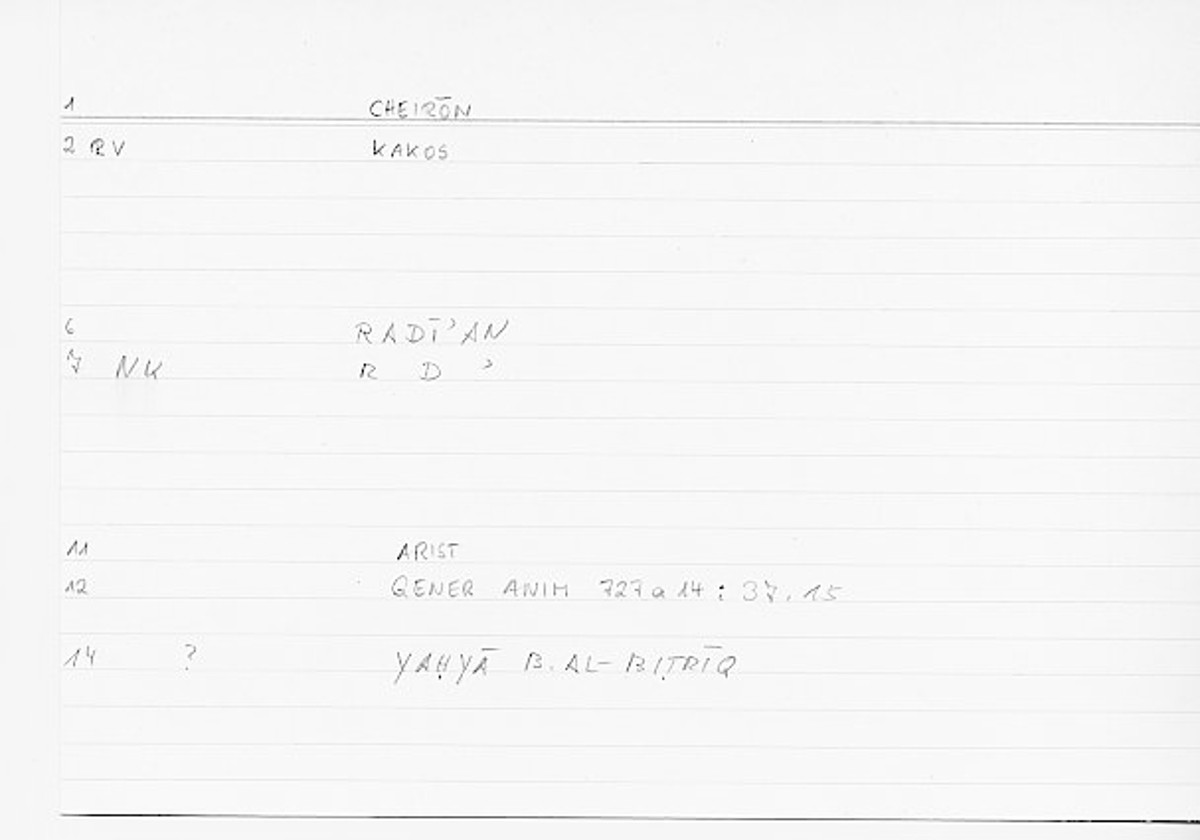 1 CHEIRŌN
2 RV KAKOS
6 RADĪʾAN
7 NK R D ʾ
11 ARIST
12 GENER ANIM 727a14 : 37.15
14 ? YAḤYĀ B. AL-BIṬRĪQ